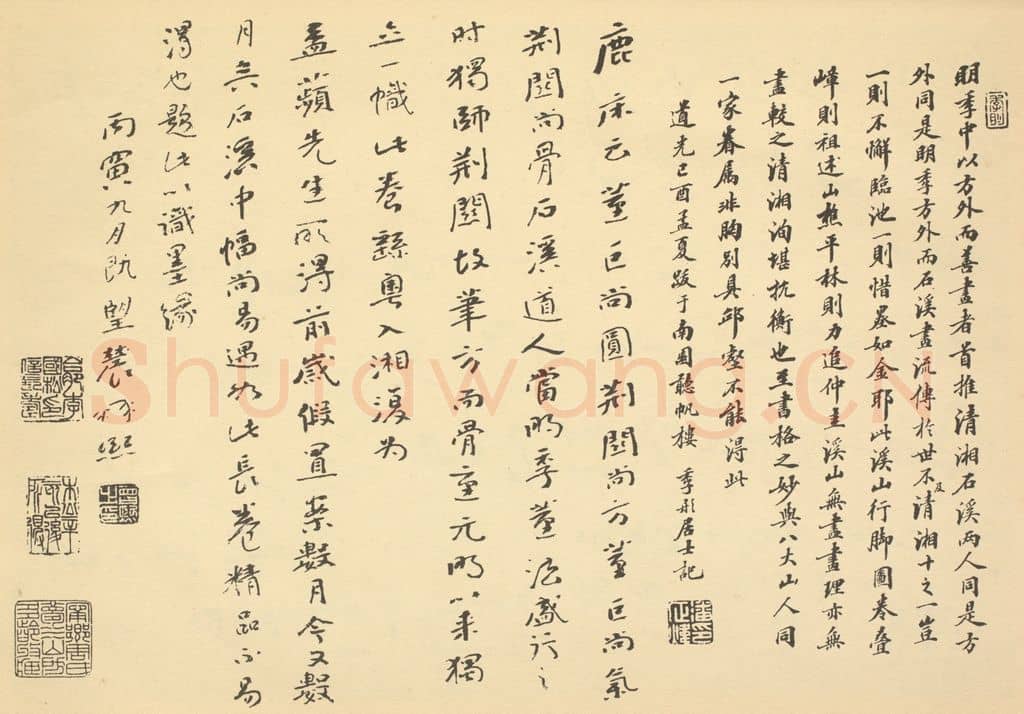 明季中以方外而善畫者首推清湘石溪兩人同是方
外同是明季方外而石溪畫流傳於世不及清湘十之一豈
一則不懈臨池一則惜墨如金耶此溪山行腳圖卷疊
嶂則祖述山樵平林則力追仲圭溪山無盡畫理亦無
盡較之清湘洵堪抗衡也至書格之妙與八大山人同
一家眷屬非胸別具邱壑不能得此
道光己酉孟夏跋于南園聽帆樓 季彤居士記
鹿床云董巨尚圓荊關尚方董巨尚氣
荊關尚骨石溪道人當明季董派盛行之
時獨師荊關故筆方而骨重元明以來獨
立一幟此卷繇粵入湘復为
孟蘋先生所得前歲假置案數月今又數
月矣石溪中幅尚易遇如此長卷精品不易
得也題此以識墨緣
丙寅九月既望 農髯熙
Shufawang.CN